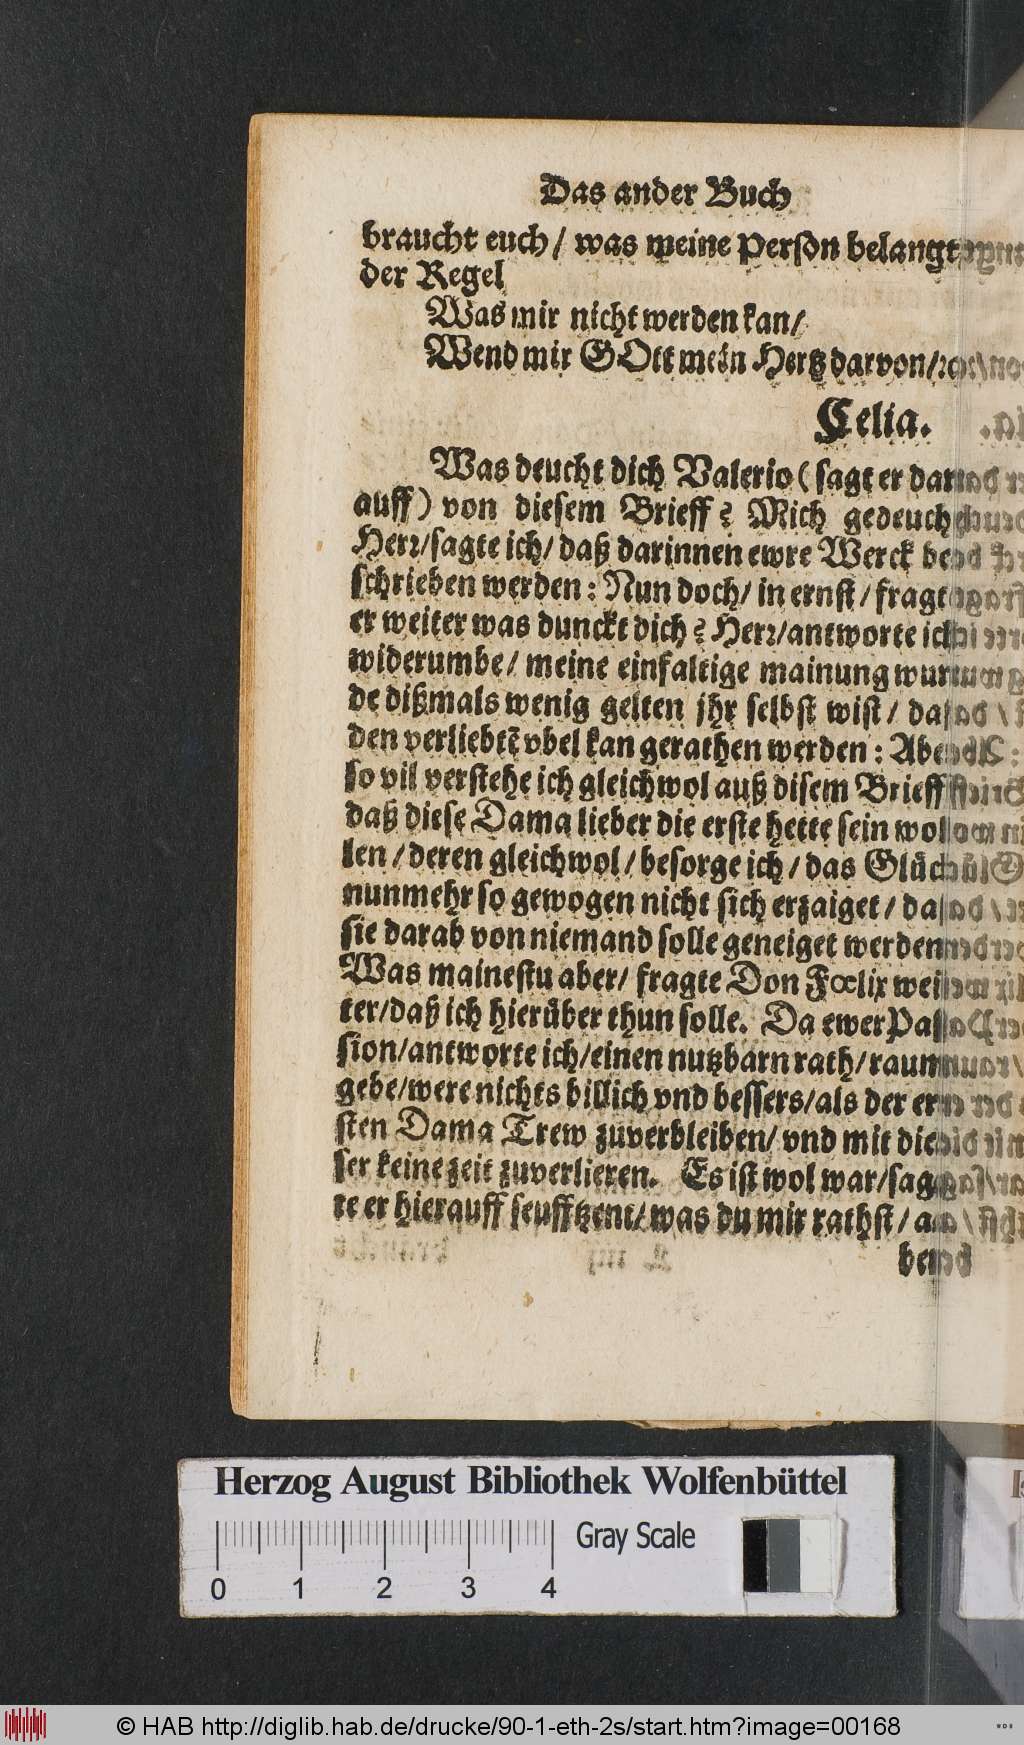 Das ander Buch
braucht euch / was meine Person belangt
der Regel
Was mir nicht werden kan /
Wend mir GOtt mein Hertz darvon / ꝛc.
Celia.
Was deucht dich Valerio ( sagt er dar
auff ) von diesem Brieff? Mich gedeucht
Herꝛ / sagte ich / daß darinnen ewre Werck be
schrieben werden : Nun doch / in ernst / fragt
er weiter was dunckt dich? Herꝛ / antworte ich
widerumbe / meine einfaltige mainung wur
de dißmals wenig gelten jhr selbst wist / das
den verliebtẽ vbel kan gerathen werden : Aber
so vil verstehe ich gleichwol auß disem Brieff
daß diese Dama lieber die erste hette sein wol
len / deren gleichwol / besorge ich / das Glück
nunmehr so gewogen nicht sich erzaiget / das
sie darab von niemand solle geneiget werden
Was mainestu aber / fragte Don Fœlix wei
ter / daß ich hierüber thun solle. Da ewer Pas
sion / antworte ich / einen nutzbarn rath / raum
gebe / were nichts billich vnd bessers / als der er
sten Dama Trew zuverbleiben / vnd mit die
ser keine zeit zuverlieren. Es ist wol war / sag
te er hierauff seufftzent / was du mir rathst / a
bend
Herzog August Bibliothek Wolfenbüttel
Gray Scale
0 1 2 3 4
© HAB http://diglib.hab.de/drucke/90-1-eth-2s/start.htm?image=00168